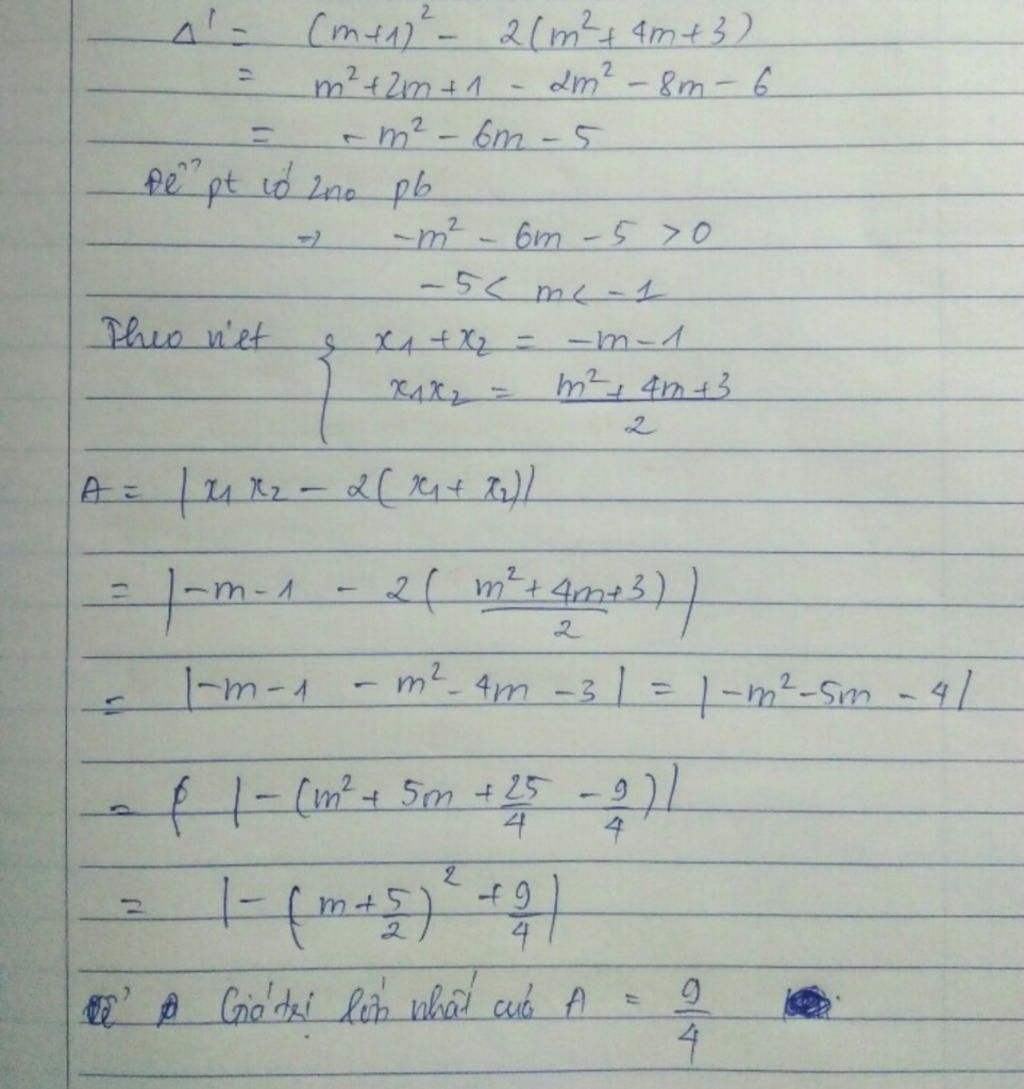 Δ' = (m+1)² - 2(m² + 4m + 3)
= m² + 2m + 1 - 2m² - 8m - 6
= - m² - 6m - 5
Để pt có 2no pb
=> -m² - 6m - 5 > 0
-5 < m < -1
Theo viet { x₁ + x₂ = -m - 1
x₁x₂ = (m² + 4m + 3)/2
A = |x₁x₂ - 2(x₁ + x₂)|
= |-m - 1 - 2((m² + 4m + 3)/2)|
= |-m - 1 - m² - 4m - 3| = |-m² - 5m - 4|
= |-(m² + 5m + 25/4 - 9/4)|
= |-(m + 5/2)² + 9/4|
Giá trị lớn nhất của A = 9/4